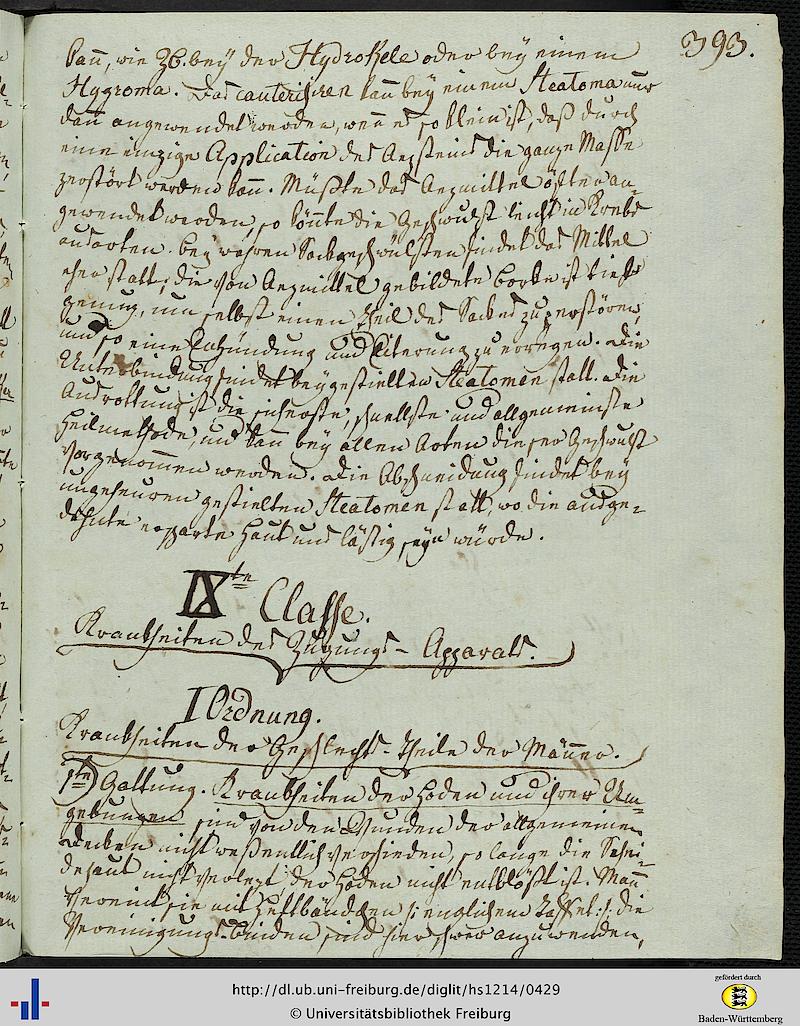 393.
kan̄, wie zB. bey der Hydrokele oder bey einem
Hygroma. Das cauterisiren kan̄ bey einem Steatoma nur
dan̄ angewendet werden, wen̄ es so klein ist, daß durch
eine einzige Application des Aezsteins die ganze Masse
zerstört werden kan̄. Müßte das Aezmittel öfter an-
gewendet werden, so kön̄te die Geschwulst leicht in Krebs
ausarten. bey wahren Sackgeschwülsten findet das Mittel
eher statt, die vom Aezmittel gebildete borke ist tief
genug, um selbst einen Theil des Sackes zu zerstören,
und so eine Entzündung und Eiterung zu erregen. Die
Unterbindung findet bey gestielten Steatomen statt. Die
Ausrottung ist die sicherste, schnellste und allgemeinste
Heilmethode, und kan̄ bey allen Arten dieser Geschwulst
vorgenommen werden. Die Abschneidung findet bey
ungeheuren gestielten Steatomen statt, wo die ausge-
dehnte ersparte Haut uns lästig seyn würde.
IXte Classe.
Krankheiten des Zeugungs-Apparats.
I Ordnung.
Krankheiten der Geschlechts-Theile der Män̄er.
1te) Gattung. Krankheiten der Hoden und ihrer Um-
gebungen sind von den Wunden der allgemeinen
Decken nicht weßentlich verschieden, so lange die Schei-
dehaut nicht verlezt, der Hoden nicht entblößt ist. Man̄
vereint sie mit Heftbändchen /: englichem Taffet :/: die
Vereinigungs-binden sind hier schwer anzuwenden,
http://dl.ub.uni-freiburg.de/diglit/hs1214/0429
© Universitätsbibliothek Freiburg
gefördert durch
Baden-Württemberg